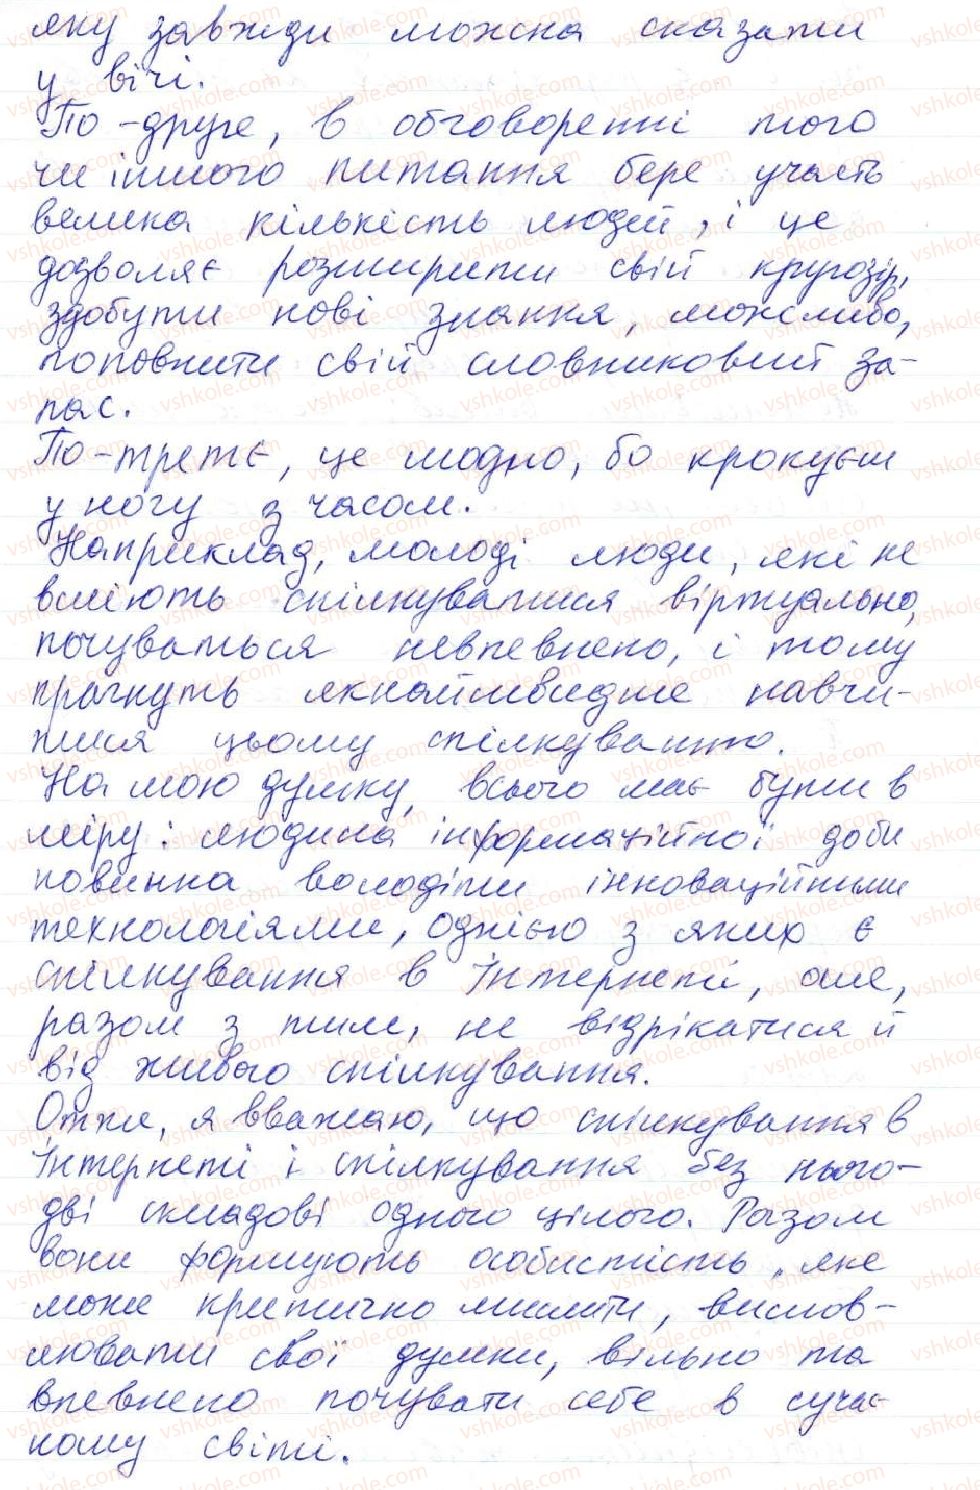 яку завжди можна сказати
у вічі.
По-друге, в обговоренні того
чи іншого питання бере участь
велика кількість людей, і це
дозволяє розширити свій кругозір,
здобути нові знання, можливо,
поповнити свій словниковий за-
пас.
По-третє, це модно, бо крокуєш
у ногу з часом.
Наприклад, молоді люди, які не
вміють спілкуватися віртуально,
почуваються невпевнено, і тому
прагнуть якнайшвидше навчи-
тися цьому спілкуванню.
На мою думку, всього має бути в
міру: людина інформаційної доби
повинна володіти інноваційними
технологіями, однією з яких є
спілкування в Інтернеті, але,
разом з тим, не відрікатися й
від живого спілкування.
Отже, я вважаю, що спілкування в
Інтернеті і спілкування без нього-
дві складові одного цілого. Разом
вони формують особистість, яке
може критично мислити, вислов-
лювати свої думки, вільно та
впевнено почувати себе в сучас-
ному світі.